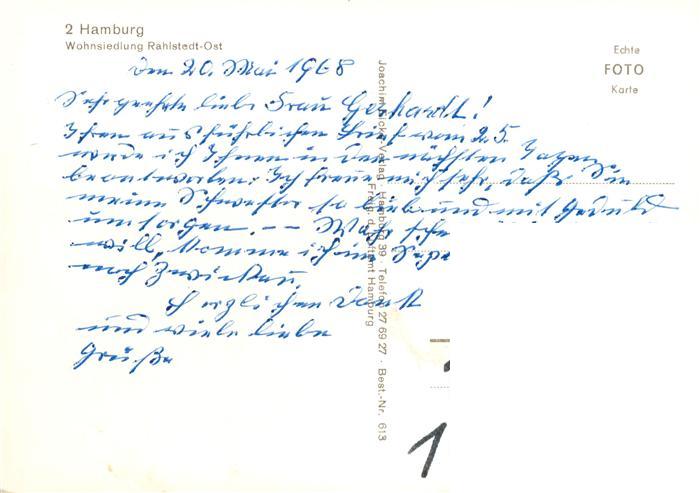 2 Hamburg
Wohnsiedlung Rahlstedt-Ost
Echte
FOTO
Karte
den 20. Mai 1968
Sehr geehrte liebe Frau Gerhardt!
Ihren ausführlichen Brief vom 2.5.
werde ich Ihnen in den nächsten Tagen
beantworten. Ich freue mich sehr, daß Sie
meine Schwester so lieb und mit Geduld
umsorgen. –– Wahr
will, komme ich im
nach Zwickau.
Herzlichen Dank
und viele liebe
Grüße
Joachim Verlag · Hamburg 39 · Telefon 27 69 27 · Best.-Nr. 613
Freig. d. amt Hamburg
1